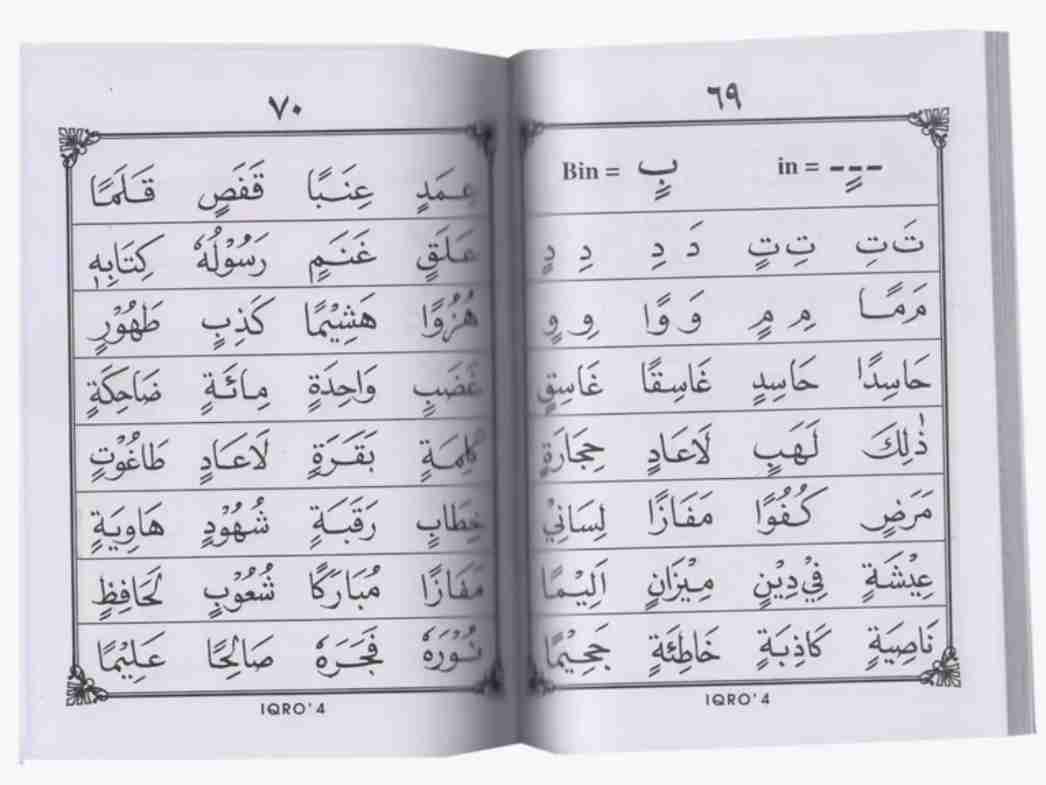 ٦٩
ـٍـ = in بٍ = Bin
تَ تِ تِ تٍ دَ دِ دِ دٍ
مَ مًا مِ مٍ وَ وًا وِ وٍ
حَاسِدًا حَاسِدٍ غَاسِقًا غَاسِقٍ
ذٰلِكَ لَهَبٍ لَاعَادٍ حِجَارَةٍ
مَرَضٍ كُفُوًا مَفَازًا لِسَانِيْ
عِيْشَةٍ فِيْ دِيْنٍ مِيْزَانٍ اَلِيْمًا
نَاصِيَةٍ كَاذِبَةٍ خَاطِئَةٍ جَحِيْمًا
IQRO' 4
٧٠
عِمَدٍ عِنَبًا قَفَصٍ قَلَمًا
عَلَقٍ غَنَمٍ رَسُوْلُهٗ كِتَابِهٖ
هُزُوًا هَشِيْمًا كَذِبٍ طَهُوْرٍ
غَضَبٍ وَاحِدَةٍ مِائَةٍ ضَاحِكَةٍ
كَلِمَةٍ بَقَرَةٍ لَاعَادٍ طَاغُوْتٍ
خِطَابٍ رَقَبَةٍ شُهُوْدٍ هَاوِيَةٍ
مَفَازًا مُبَارَكًا شُعُوْبٍ لَحَافِظٍ
نُوْرَهٗ فَجَرَهٗ صَالِحًا عَلِيْمًا
IQRO' 4